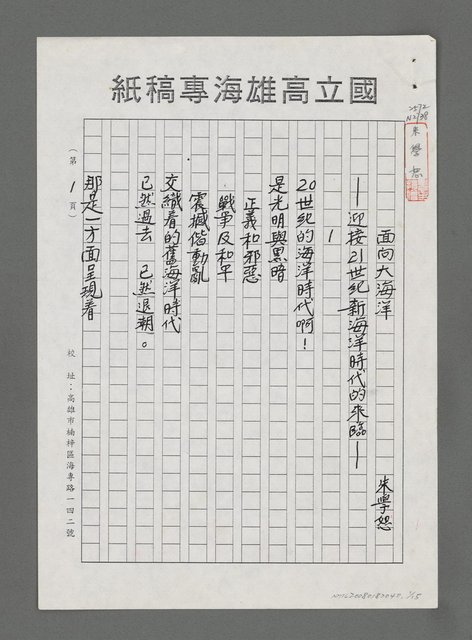 國立高雄海專稿紙
2572
N2138
朱學恕
面向大海洋
朱學恕
—迎接21世紀新海洋時代的來臨—
1
20世紀的海洋時代啊！
是光明與黑暗
正義和邪惡
戰爭反和平
震撼偕動亂
交織着的舊海洋時代
已然過去 已然退潮。
那是一方面呈現着
（第1頁）
校址：高雄市楠梓區海專路一四二號
NMTL20080182047. 1/15